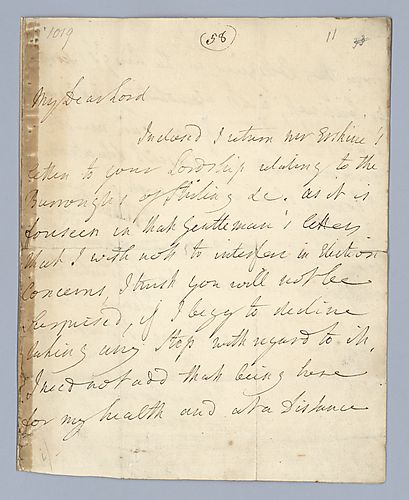 1019
(58)
11
My Dear Lord
Inclosed I return Mr Erskine's
letter to your Lordship relating to the
Burroughs of Stirling &c. as it is
foreseen in that gentleman's letter
that I wish not to interfere in Election
Concerns, I trust you will not be
Surprised, if I beg to decline
taking any Step with regard to it,
I need not add that being here
for my health and at a Distance